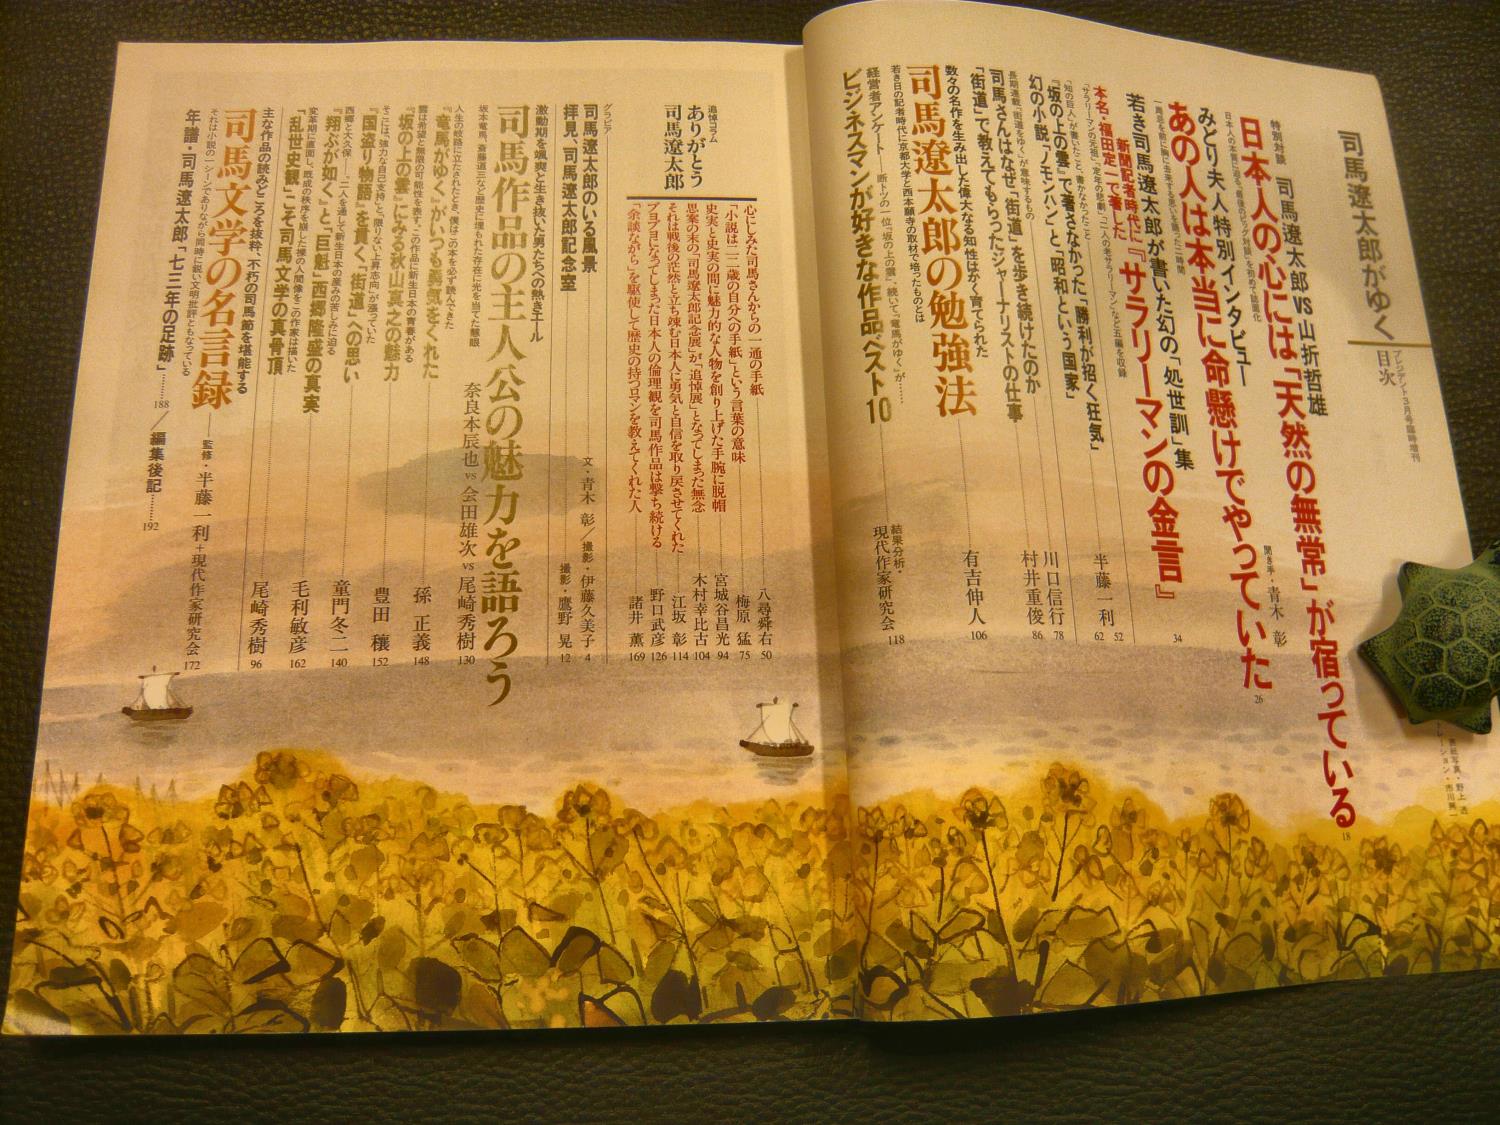 司馬遼太郎がゆく
目次
プレジデント3月号臨時増刊
特別対談 司馬遼太郎 VS 山折哲雄
日本人の心には「天然の無常」が宿っている
18
みどり夫人特別インタビュー
あの人は本当に命懸けでやっていた
聞き手・青木 彰
26
若き司馬遼太郎が書いた幻の「処世訓」集
『サラリーマンの金言』
34
新聞記者時代に
本名・福田定一で著した
52
『坂の上の雲』で著さなかった「勝利が招く狂気」
半藤一利
62
幻の小説「ノモンハン」と、「昭和という国家」
川口信行
78
長期連載「街道をゆく」が意味するもの
司馬さんはなぜ「街道」を歩き続けたのか
村井重俊
86
「街道」で教えてもらったジャーナリストの仕事
数々の名作を生み出した偉大なる知性はかく育てられた
司馬遼太郎の勉強法
有吉伸人
106
若き日の記者時代に京都大学と西本願寺の取材で培ったものとは
経営者アンケート―断トツの一位『坂の上の雲』、続いて『竜馬がゆく』が……
ビジネスマンが好きな作品ベスト10
結果分析・現代作家研究会
118
追悼コラム
ありがとう
司馬遼太郎
心にしみた司馬さんからの一通の手紙
八尋舜右
50
「小説は二二歳の自分への手紙」という言葉の意味
梅原 猛
75
史実と史実の間に魅力的な人物を創り上げた手腕に脱帽
宮城谷昌光
94
思案の末の「司馬遼太郎記念展」が「追悼展」となってしまった無念
木村幸比古
104
それは戦後の茫然と立ち竦む日本人に勇気と自信を取り戻させてくれた
江坂 彰
114
ブヨブヨになってしまった日本人の倫理観を司馬作品は撃ち続ける
野口武彦
126
「余談ながら」を駆使して歴史の持つロマンを教えてくれた人
諸井 薫
169
グラビア
司馬遼太郎のいる風景
文・青木 彰/撮影・伊藤久美子
4
拝見、「司馬遼太郎記念室」
撮影・鷹野 晃
12
激動期を颯爽と生き抜いた男たちへの熱きエール
司馬作品の主人公の魅力を語ろう
坂本竜馬、斎藤道三など歴史に埋もれた存在に光を当てた慧眼
奈良本辰也 vs 会田雄次 vs 尾崎秀樹
130
人生の岐路に立たされたとき、僕はこの本を必ず読んできた
『竜馬がゆく』がいつも勇気をくれた
孫 正義
148
『坂の上の雲』にみる秋山真之の魅力
豊田 穣
152
そこには、強力な自己支持と、限りない上昇志向が漲っていた
『国盗り物語』を貫く、「街道」への思い
童門冬二
140
西郷と大久保――二人を通して新生日本の産みの苦しみに迫る
『翔ぶが如く』と「巨魁」西郷隆盛の真実
毛利敏彦
162
変革期に直面し、既成の秩序を崩した裸の人間像をこの作家は描いた
「乱世史観」こそ司馬文学の真骨頂
尾崎秀樹
96
主な作品の読みどころを抜粋、不朽の司馬節を堪能する
司馬文学の名言録
監修・半藤一利+現代作家研究会
172
それは小説の一シーンでありながら同時に鋭い文明批評となっている
年譜・司馬遼太郎「七三年の足跡」……188/編集後記……192